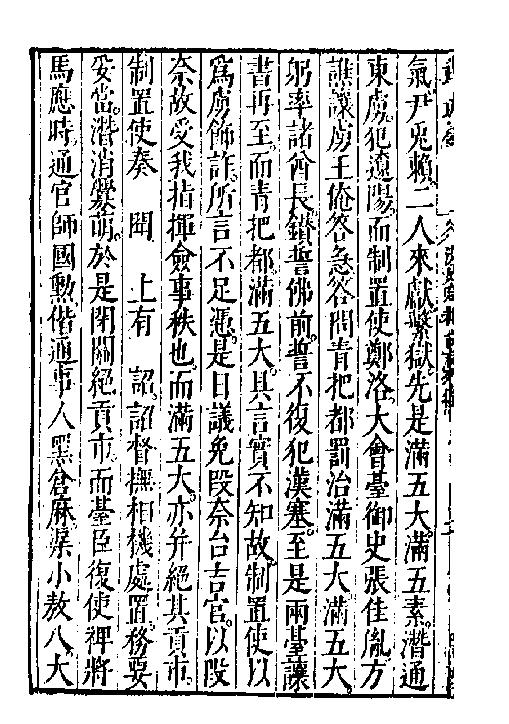 氣尹兎賴二人來獻繫獄先是滿五大滿五素潛通
東虜犯遼陽而制置使鄭洛大會臺御史張佳胤方
誰讓虜王俺答急答問青把都罰治滿五大滿五大
躬率諸酋長鑚誓佛前誓不復犯漢塞至是兩臺讓
書再至而青把都滿五大其言實不知故制置使以
爲虜飾詐所言不足憑是日議免段奈台吉官以段
奈故受我指揮僉事秩也而滿五大亦幷絕其貢市
制置使奏 聞 上有 詔詔督撫相機處置務要
妥當潛消釁萌於是閉關絕貢市而臺臣復使裨將
馬應時通官師國勲偕通事人黑倉麻渠小敖八大